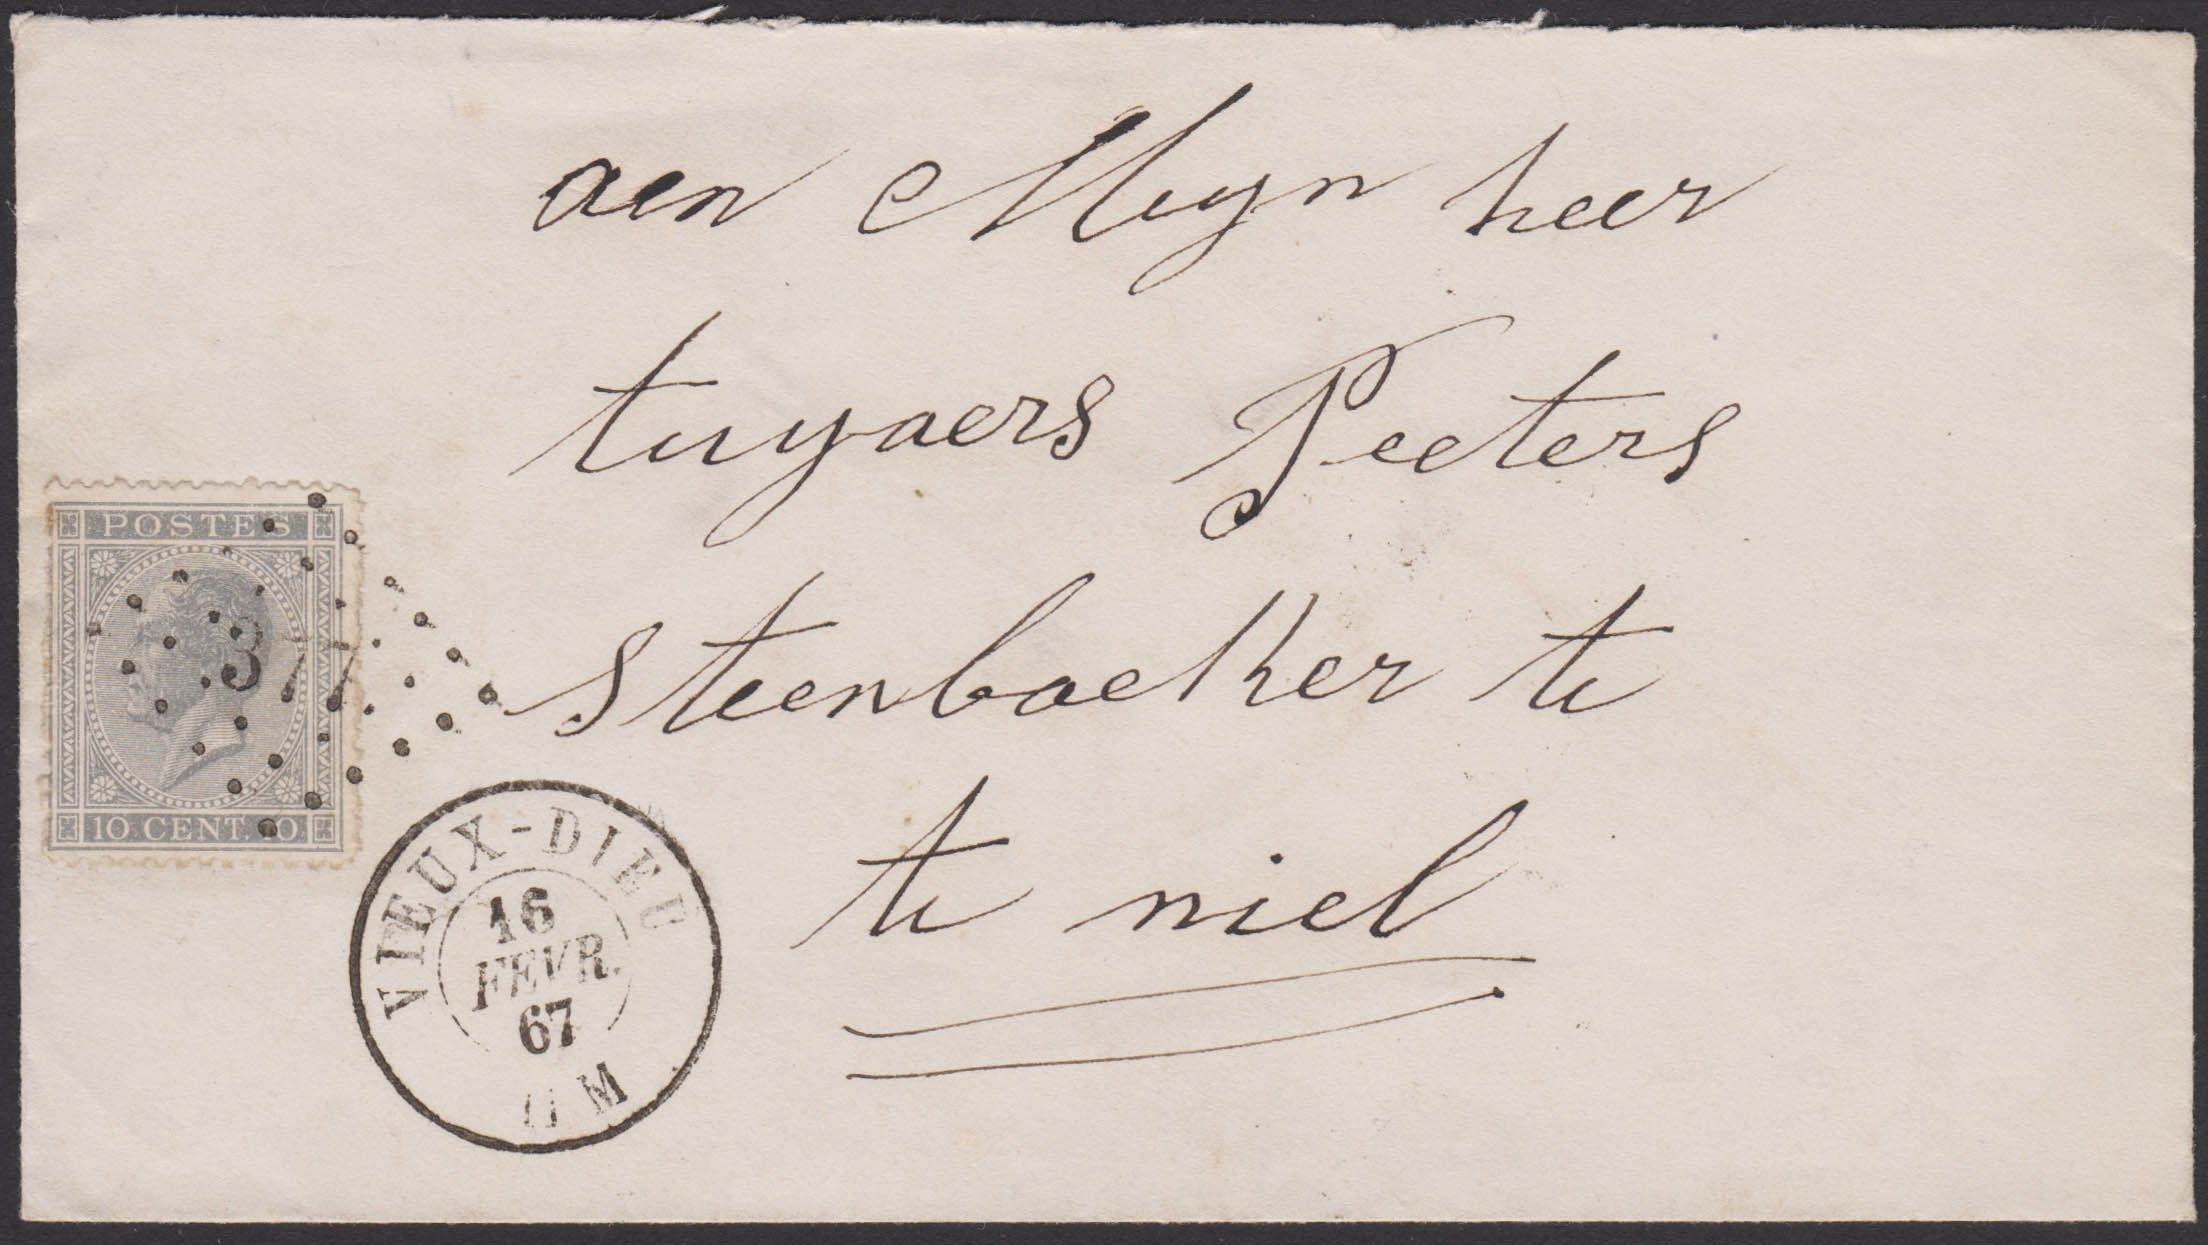 aen Myn heer
tuyaers Peeters
steenbaeker te
te niel
POSTES
377
10 CENT. 10
VIEUX-DIEU
16
FEVR.
67
11 M